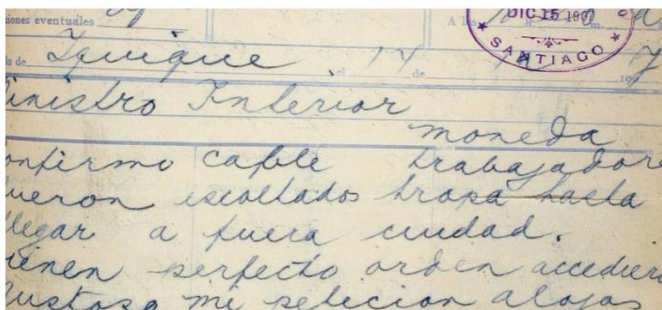 iones eventuales
A la
DIC 15 190
SANTIAGO
do de Iquique el 14 de 1907
inistro Interior
moneda
onfirmo cable trabajador
ueron escoltados tropa hasta
llegar a fuera ciudad.
ienen perfecto orden accedier
gustoso mi peticion alojas